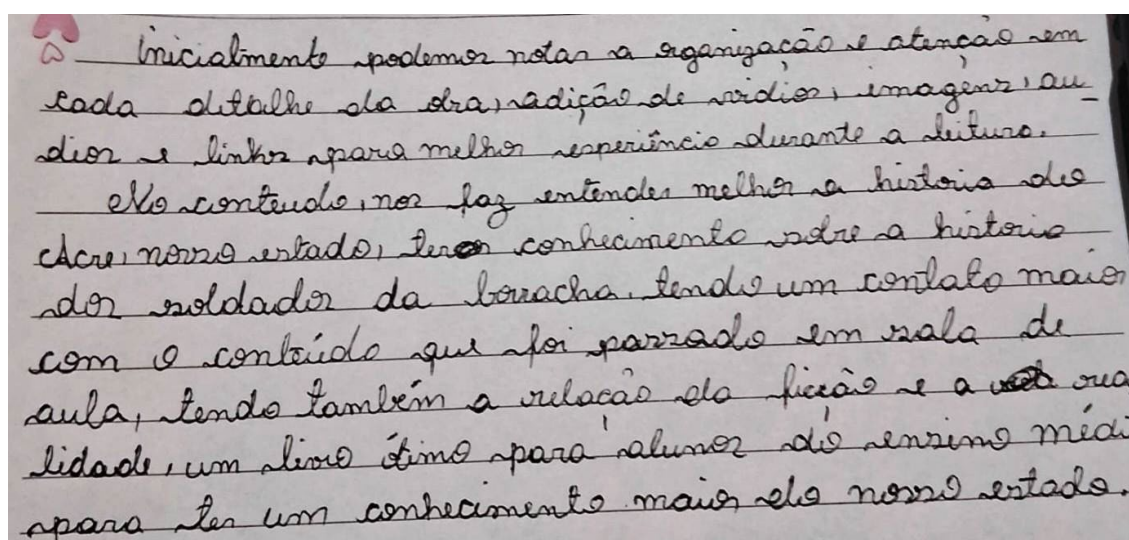 Inicialmente podemos notar a organização e atenção em
cada detalhe da obra, adição de vídios, imagens, au_
dios e links para melhor experiência durante a leitura.
No conteudo, nos faz entender melhor a historia do
Acre, nosso estado, ter conhecimento sobre a historia
dos soldados da borracha, tendo um contato maior
com o conteúdo que foi passado em sala de
aula, tendo também a relação da ficção e a rea
lidade, um livro ótimo para alunos do ensino médi
para ter um conhecimento maior do nosso estado.